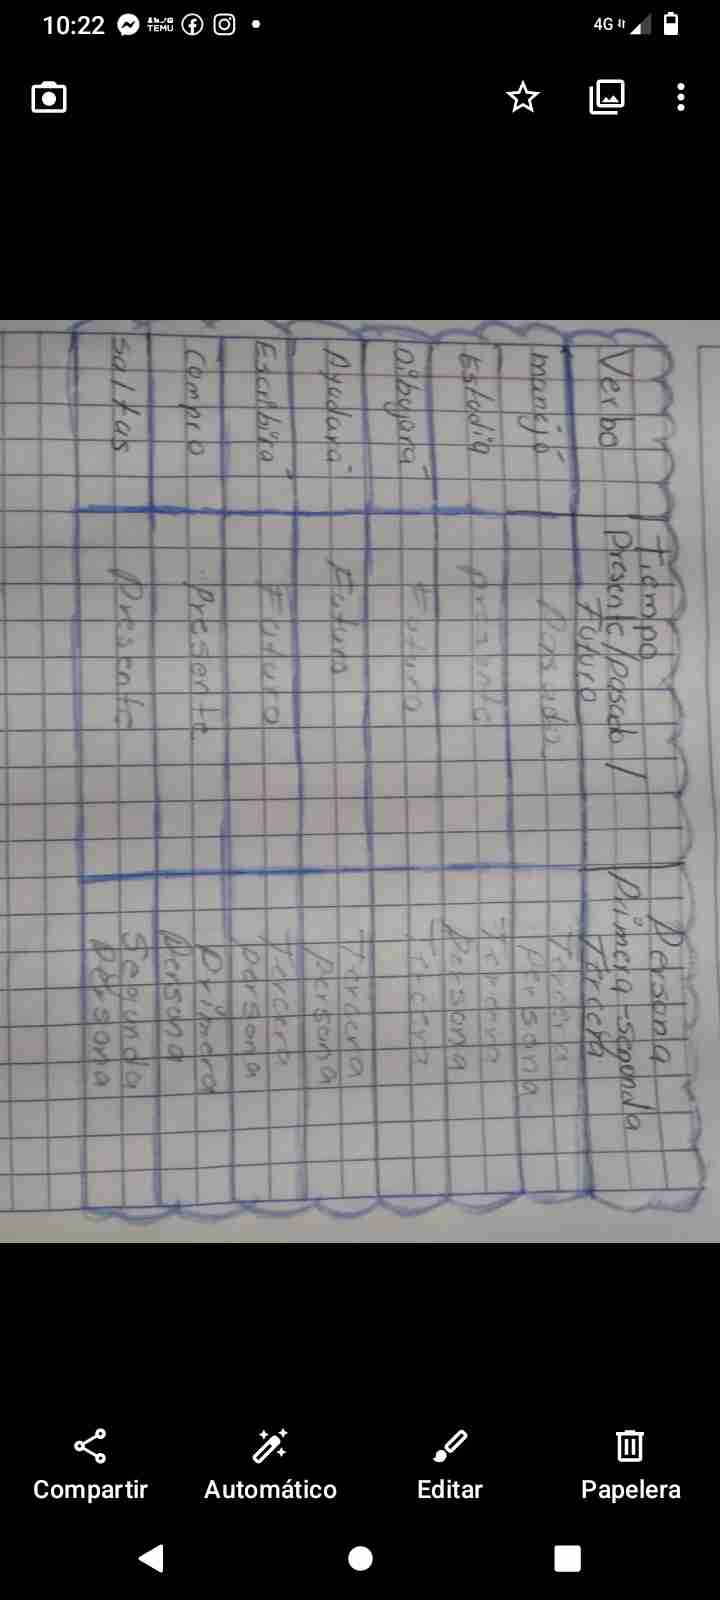 10:22
TEMU
4G
Verbo
Tiempo
Presente/pasado/
Futuro
Persona
Primera-segunda
Tercera
manejó
Pasado
Tercera
persona
Estudia
presente
Tercera
Persona
Dibujará
Futuro
Tercera
Ayudará
Futuro
Tercera
persona
Escribirá
Futuro
Tercera
persona
Compro
Presente
primera
persona
saltas
Presente
Segunda
Persona
Compartir
Automático
Editar
Papelera